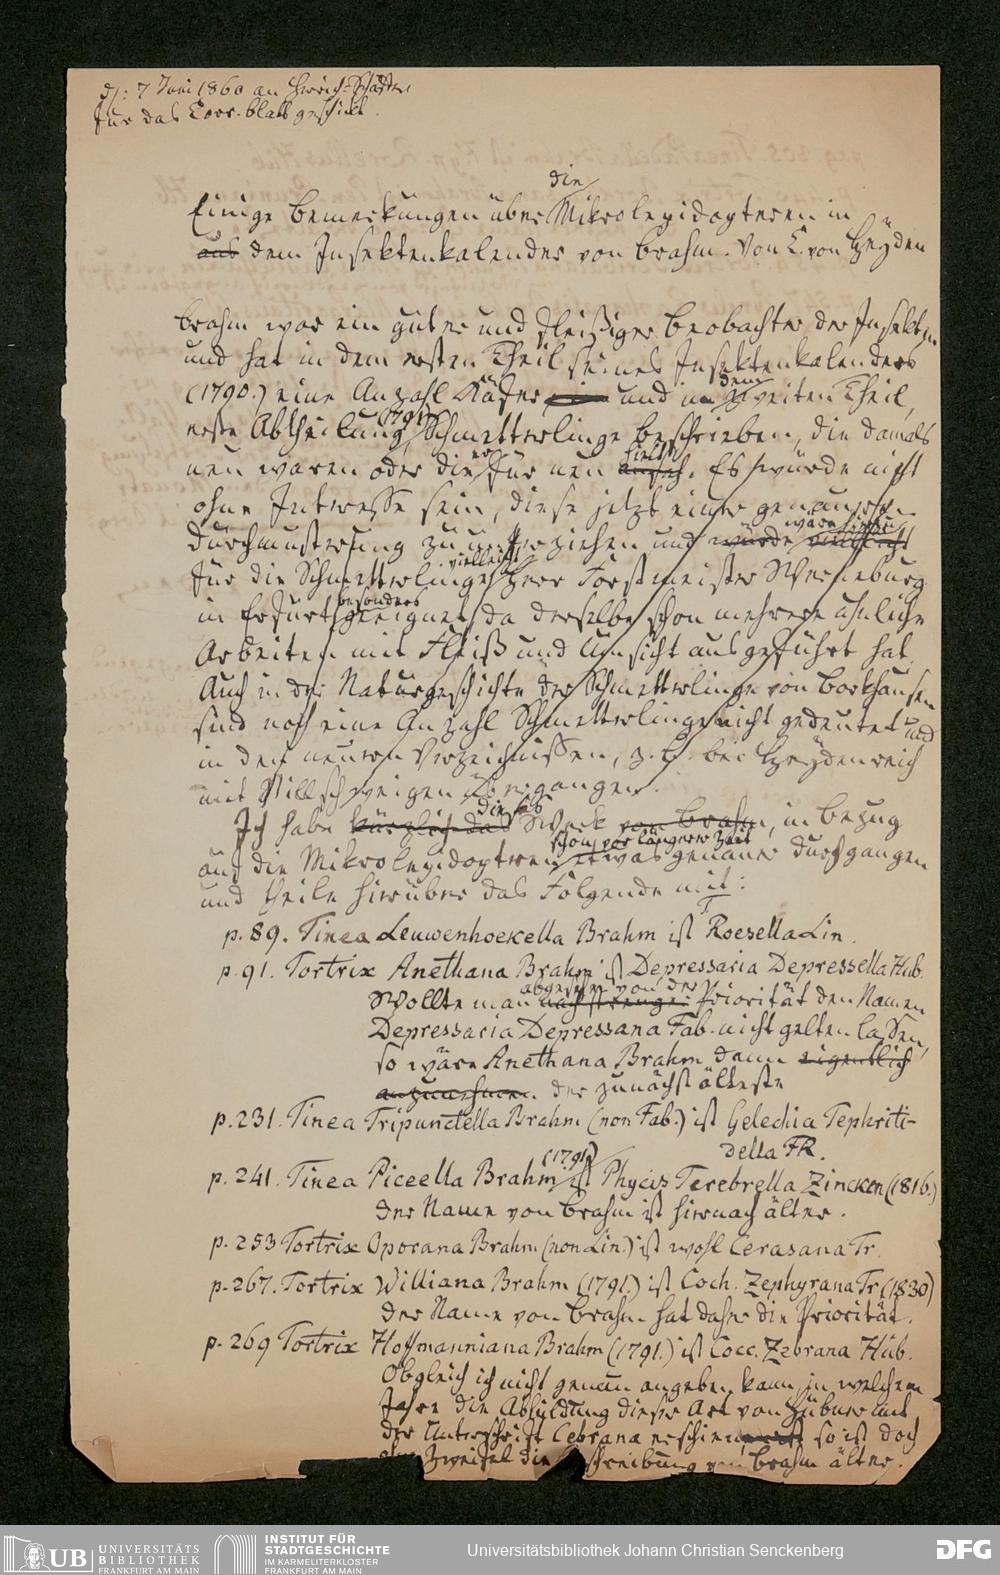 d. 7 Juni 1860 an Herrich-Schäffer
für das Corr. blatt geschickt.
die
Einige Bemerkungen über Mikrolepidopteren in
aus dem Insektenkalender von Brahm. Von C. von Heyden
Brahm war ein guter und fleißiger Beobachter der Insekten
und hat in dem ersten Theil seines Insektenkalenders
(1790.) eine Anzahl Käfer und in dem zweiten Theil,
erste Abtheilung (1791) Schmetterlinge beschrieben, die damals
neu waren oder die er für neu hielt. Es würde nicht
ohne Interesse sein, diese jetzt einer genaueren
Durchmusterung zu unterziehen und wäre hierzu
für die Schmetterlinge vielleicht Herr Forstmeister Werneburg
in Erfurth besonders geeignet, da derselbe schon mehrere ähnliche
Arbeiten mit Fleiß und Umsicht ausgeführt hat.
Auch in der Naturgeschichte der Schmetterlinge von Borkhausen
sind noch eine Anzahl Schmetterlinge nicht gedeutet und
in den neuern Verzeichnissen, z. B. bei Heydenreich
mit Stillschweigen übergangen.
Ich habe kürzlich das dieses Werk von Brahm, in Bezug
auf die Mikrolepidoptern schon vor längerer Zeit etwas genauer durchgangen
und theile hierüber das Folgende mit:
p. 89. Tinea Leuwenhoekella Brahm ist Roesella Lin.
p. 91. Tortrix Anethana Brahm ist Depressaria Depressella Hub.
Wollte man abgesehen von der Priorität den Namen
Depressaria Depressana Fab. nicht gelten lassen,
so wäre Anethana Brahm dann eigentlich
anzunehmen. der zunächst älteste
p. 231. Tinea Tripunctella Brahm (non Fab.) ist Gelechia Tephriti-
della FR.
p. 241. Tinea Piceella Brahm (1791.) ist Phycis Terebrella Zincken (1816.)
der Name von Brahm ist hiernach älter.
p. 253 Tortrix Oporana Brahm (non Lin.) ist wohl Cerasana Tr.
p. 267. Tortrix Williana Brahm (1791.) ist Coch. Zephyrana Tr (1830)
der Name von Brahm hat daher die Priorität.
p. 269 Tortrix Hoffmanniana Brahm (1791.) ist Cocc. Zebrana Hüb.
Obgleich ich nicht genau angeben kann, in welchem
Jahre die Abbildung dieser Art von Hübner mit
der Unterschrift Cebrana erschien, so ist doch
ohne Zweifel die Beschreibung von Brahm älter.
UB UNIVERSITÄTS
BIBLIOTHEK
FRANKFURT AM MAIN
INSTITUT FÜR
STADTGESCHICHTE
IM KARMELITERKLOSTER
FRANKFURT AM MAIN
Universitätsbibliothek Johann Christian Senckenberg
DFG